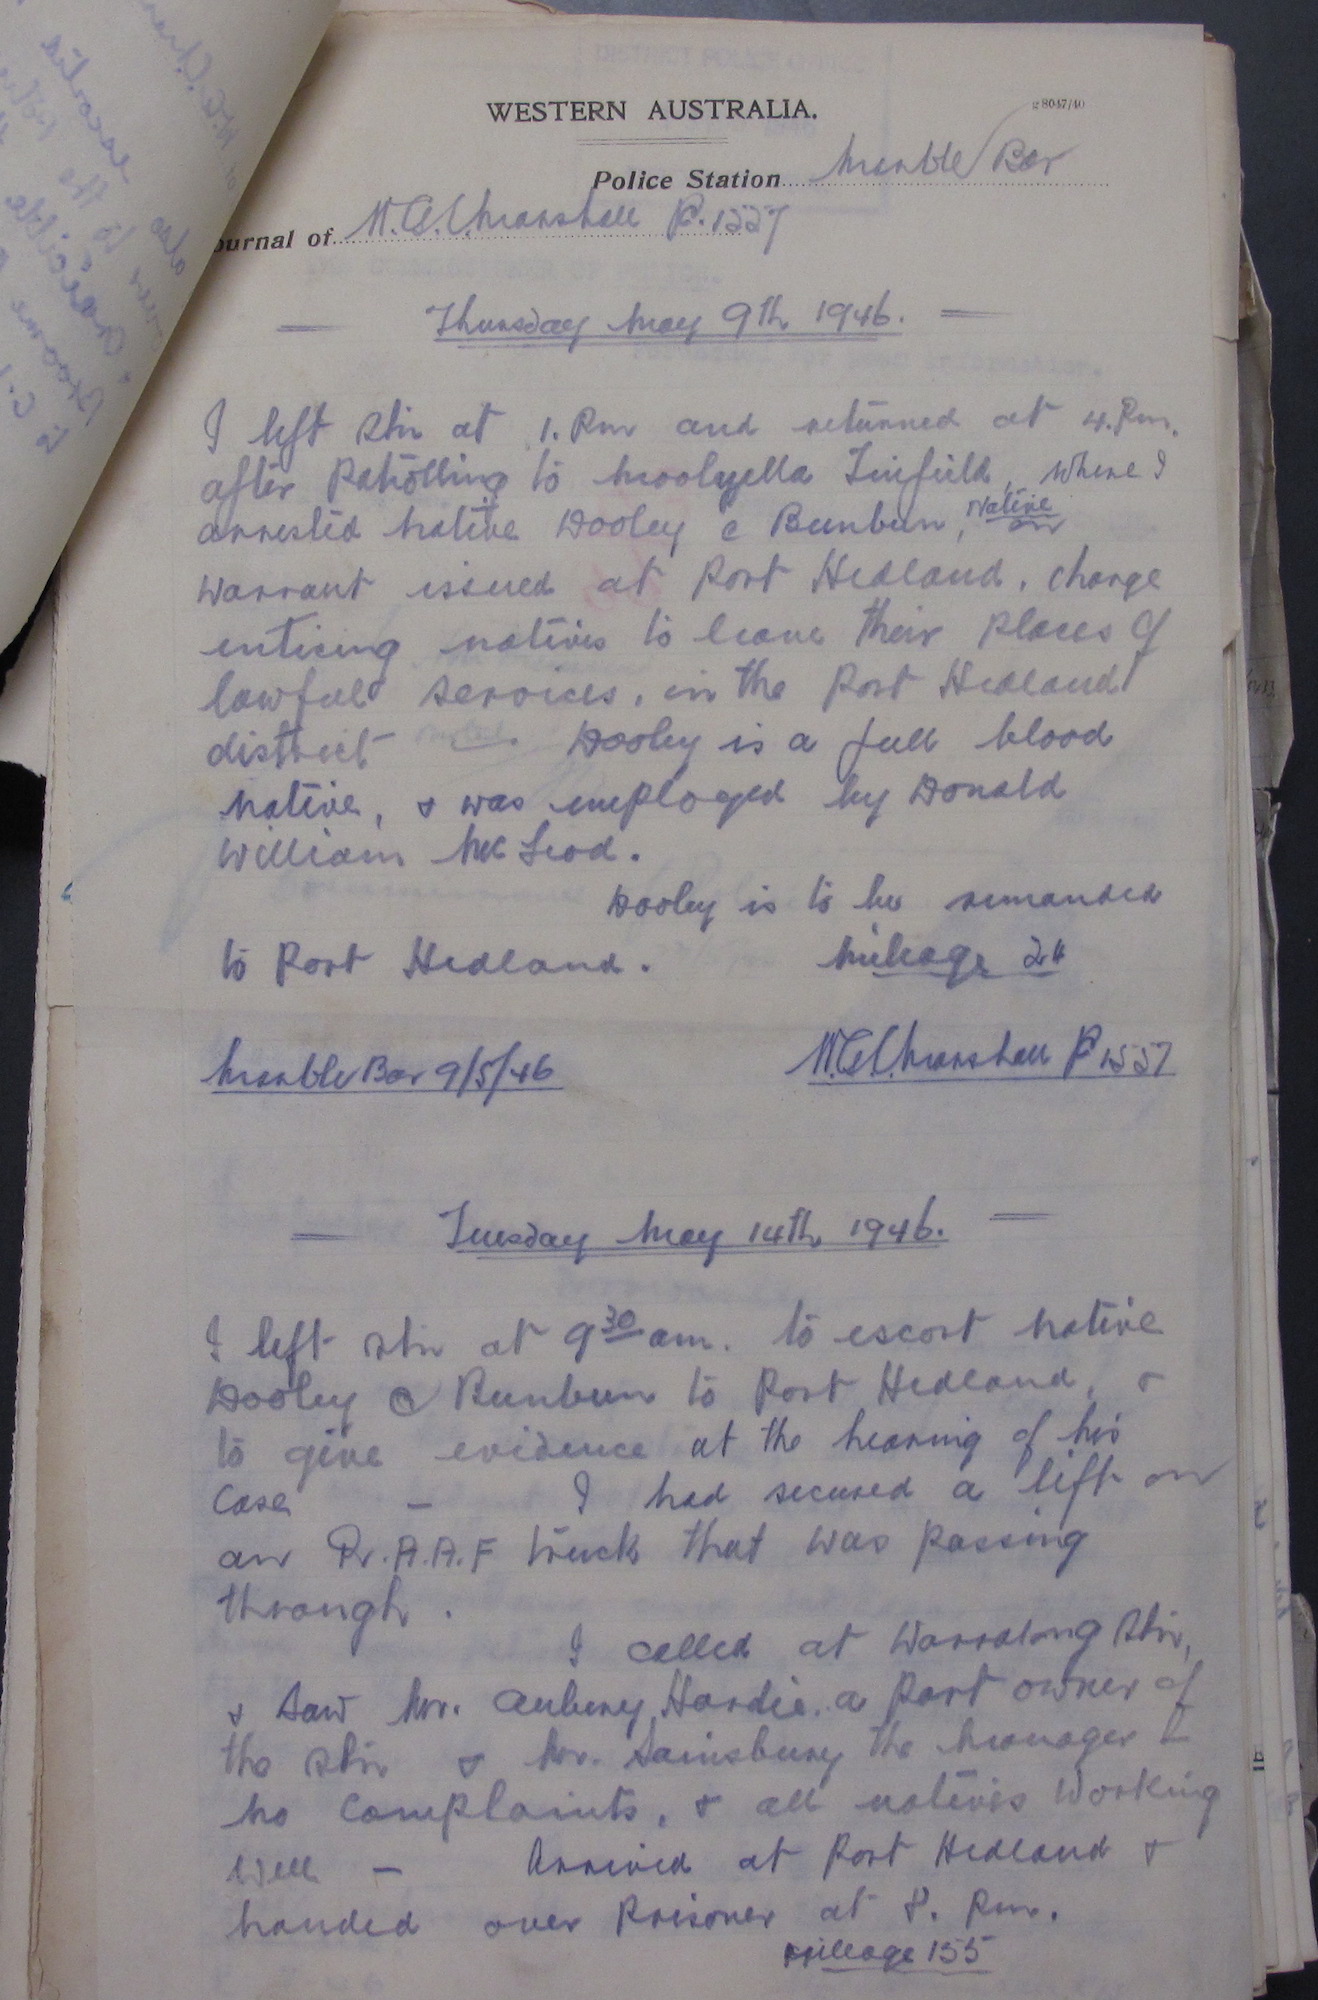 WESTERN AUSTRALIA.
8047/40
Police Station Marble Bar
ournal of W.G.C. Marshall P.C. 1557
Thursday May 9th 1946.
I left Stn at 1. Pm and returned at 4. Pm.
after Patrolling to Moolyella Tinfield, where I
arrested native Dooley c Bunbun, Native on
warrant issued at Port Hedland, charge
enticing natives to leave their places of
lawful services, in the Port Hedland
district Dooley is a full blood
native, & was employed by Donald
William McLeod.
Dooley is to be remanded
to Port Hedland. Mileage 24
Marble Bar 9/5/46 W.G.C. Marshall P.C. 1557
Tuesday May 14th 1946.
I left Stn at 9 30 am. to escort native
Dooley c Bunbun to Port Hedland, &
to give evidence at the hearing of his
Case – I had secured a lift on
an R.A.A.F truck that was passing
through.
I called at Warralong Stn,
& saw Mr. Aubrey Hardie, a Part owner of
the Stn & Mr. Sainsbury the Manager
no Complaints, & all natives working
well – Arrived at Port Hedland &
handed over Prisoner at 8. Pm.
Mileage 155